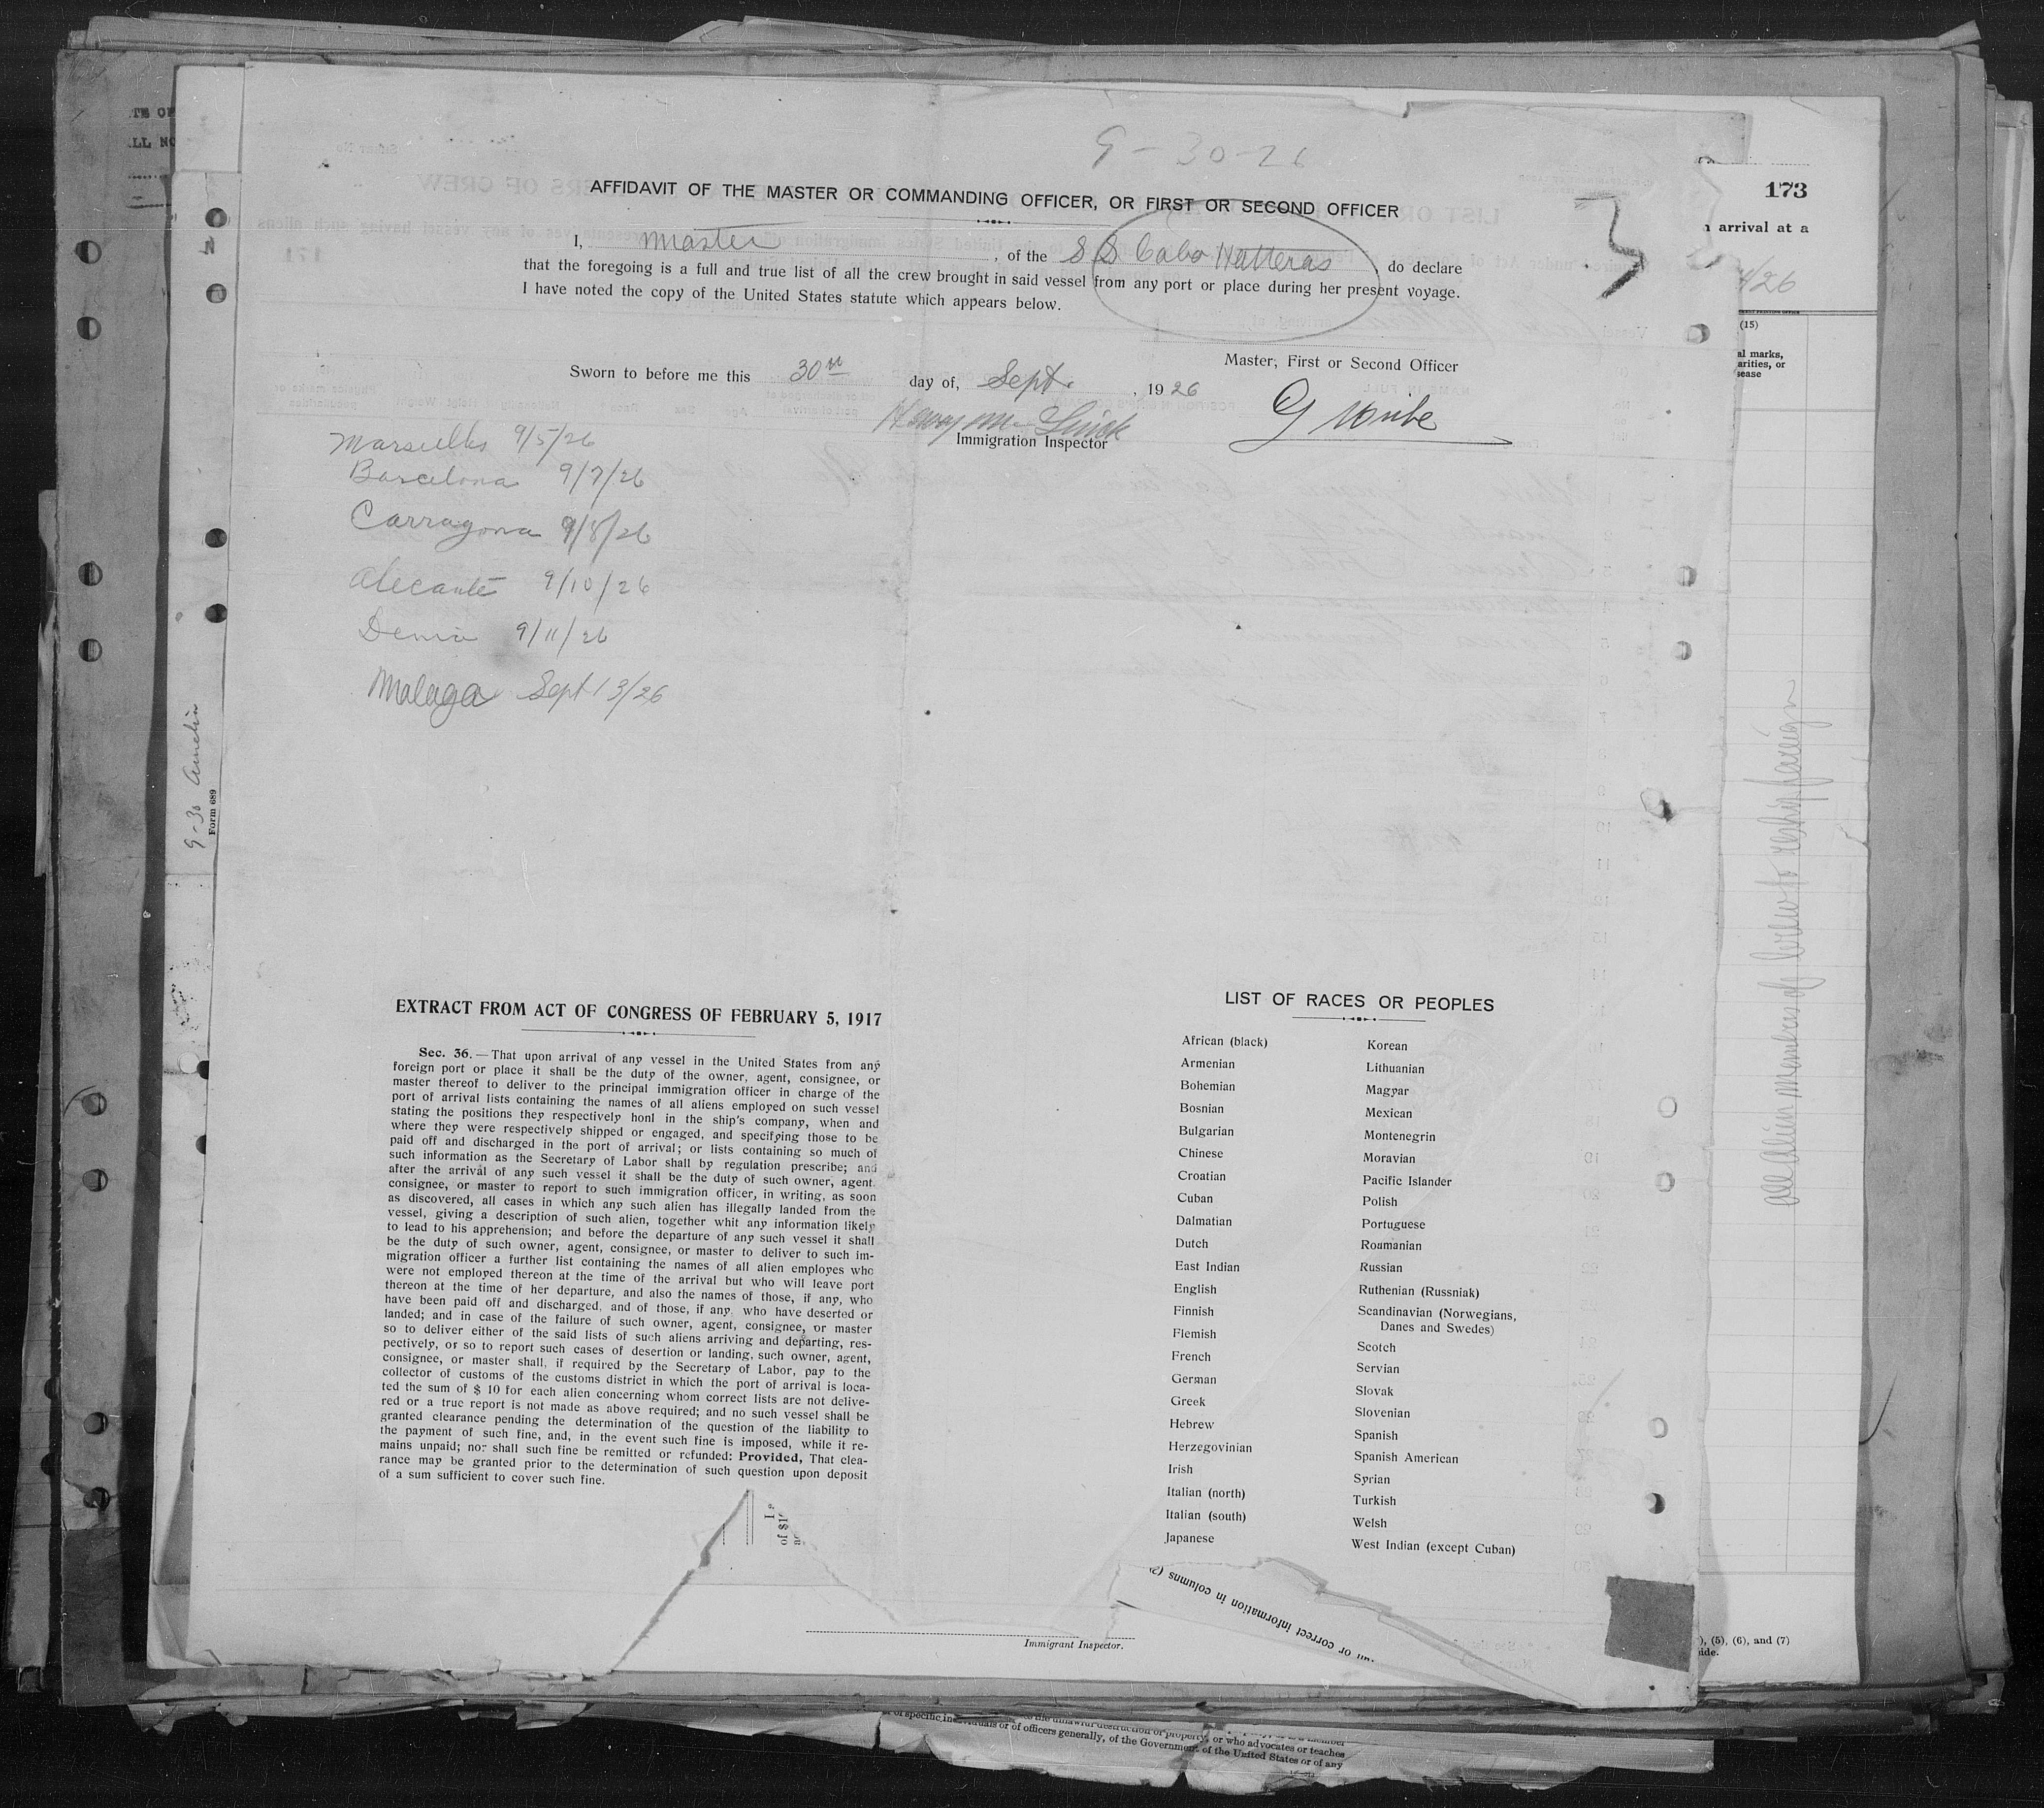 TE OF
LL NO
9-30-26
AFFIDAVIT OF THE MASTER OR COMMANDING OFFICER, OR FIRST OR SECOND OFFICER
I, Master, of the S S Cabo Hatteras, do declare
that the foregoing is a full and true list of all the crew brought in said vessel from any port or place during her present voyage.
I have noted the copy of the United States statute which appears below.
3
173
arrival at a
/26
(15)
al marks,
arities, or
sease
Master, First or Second Officer
Sworn to before me this 30th day of, Sept. , 1926
Henry M.
G Uribe
Immigration Inspector
Marseilles 9/5/26
Barcelona 9/7/26
Carragona 9/8/26
Alecante 9/10/26
Denia 9/11/26
Malaga Sept 13/26
9-30
Form 689
all alien members of crew to reship foreign
EXTRACT FROM ACT OF CONGRESS OF FEBRUARY 5, 1917
Sec. 36.—That upon arrival of any vessel in the United States from any
foreign port or place it shall be the duty of the owner, agent, consignee, or
master thereof to deliver to the principal immigration officer in charge of the
port of arrival lists containing the names of all aliens employed on such vessel
stating the positions they respectively honl in the ship's company, when and
where they were respectively shipped or engaged, and specifying those to be
paid off and discharged in the port of arrival; or lists containing so much of
such information as the Secretary of Labor shall by regulation prescribe; and
after the arrival of any such vessel it shall be the duty of such owner, agent,
consignee, or master to report to such immigration officer, in writing, as soon
as discovered, all cases in which any such alien has illegally landed from the
vessel, giving a description of such alien, together whit any information likely
to lead to his apprehension; and before the departure of any such vessel it shall
be the duty of such owner, agent, consignee, or master to deliver to such im-
migration officer a further list containing the names of all alien employes who
were not employed thereon at the time of the arrival but who will leave port
thereon at the time of her departure, and also the names of those, if any, who
have been paid off and discharged, and of those, if any, who have deserted or
landed; and in case of the failure of such owner, agent, consignee, or master
so to deliver either of the said lists of such aliens arriving and departing, res-
pectively, or so to report such cases of desertion or landing, such owner, agent,
consignee, or master shall, if required by the Secretary of Labor, pay to the
collector of customs of the customs district in which the port of arrival is loca-
ted the sum of $ 10 for each alien concerning whom correct lists are not delive-
red or a true report is not made as above required; and no such vessel shall be
granted clearance pending the determination of the question of the liability to
the payment of such fine, and, in the event such fine is imposed, while it re-
mains unpaid; nor shall such fine be remitted or refunded: Provided, That clea-
rance may be granted prior to the determination of such question upon deposit
of a sum sufficient to cover such fine.
LIST OF RACES OR PEOPLES
African (black)
Armenian
Bohemian
Bosnian
Bulgarian
Chinese
Croatian
Cuban
Dalmatian
Dutch
East Indian
English
Finnish
Flemish
French
German
Greek
Hebrew
Herzegovinian
Irish
Italian (north)
Italian (south)
Japanese
Korean
Lithuanian
Magyar
Mexican
Montenegrin
Moravian
Pacific Islander
Polish
Portuguese
Roumanian
Russian
Ruthenian (Russniak)
Scandinavian (Norwegians,
Danes and Swedes)
Scotch
Servian
Slovak
Slovenian
Spanish
Spanish American
Syrian
Turkish
Welsh
West Indian (except Cuban)
or correct information in columns (2)
Immigrant Inspector.
, (5), (6), and (7)
ide.
or who advocates or teaches
of specific individuals or of officers generally, of the Government of the United States or of any